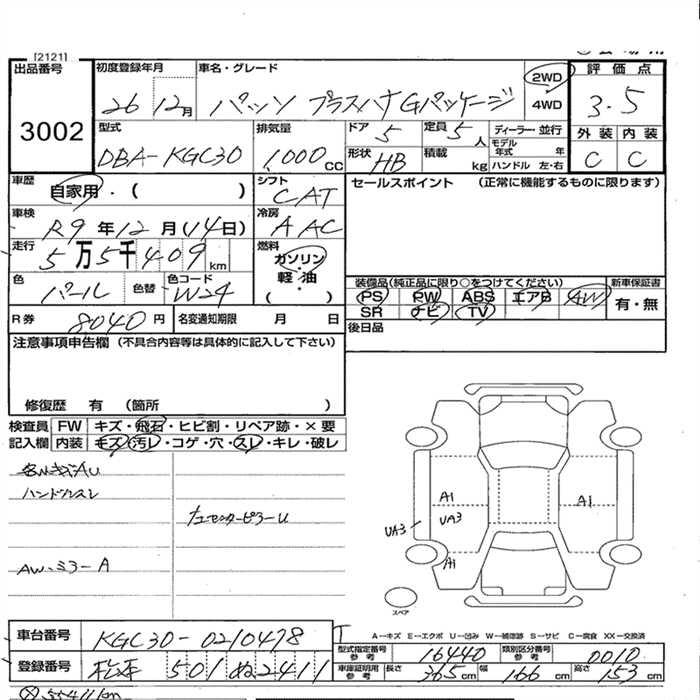 [2121]
出品番号
3002
初度登録年月
26 12月
車名・グレード
パッソ プラスハナGパッケージ
2WD
4WD
評価点
3.5
外装 内装
C C
型式
DBA-KGC30
排気量
1,000 CC
ドア 5
定員 5人
形状 HB
積載 kg
ディーラー・並行
モデル年式 年
ハンドル 左・右
車歴
自家用・( )
シフト
CAT
セールスポイント (正常に機能するものに限ります)
車検
R9年12月(14日)
冷房
AAC
走行
5万5千409km
燃料
ガソリン
軽・油
( )
色
パール
色替
色コード
W24
装備品(純正品に限り○をつけてください)
PS PW ABS エアB AW
SR ナビ TV
新車保証書
有・無
R券 8040円
名変通知期限 月 日
後日品
注意事項申告欄 (不具合内容等は具体的に記入して下さい)
修復歴 有 (箇所 )
検査員 FW キズ・飛石・ヒビ割・リペア跡・×要
記入欄 内装 キズ・汚レ・コゲ・穴・スレ・キレ・破レ
ハンドルスレ
AW-ミラーA
A1
UA3
UA3
A1
A1
スペア
A-キズ E-エクボ U-凹み W-補修跡 S-サビ C-腐食 XX-交換済
車台番号
KGC30-0210478
登録番号
501 ぬ2411
型式指定番号 参考 16440
類別区分番号 参考 0010
車庫証明用 参考 長さ 365cm 幅 166cm 高さ 153cm
55411km